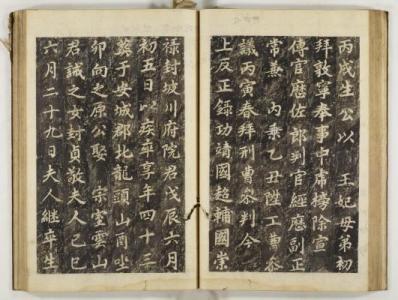 丙戌生公以 王妃母弟初
拜敦寧奉事中除宣
傳官歷佐郎判官經應副正
常兼 內乘乙丑陞工曹參
議丙寅春拜刑曹參判今
上反正錄功靖國超輔國崇
祿封坡川府院君戊辰六月
初五日以疾卒享年四十三
葬于安城郡北龍頭山酉坐
卯向之原公娶 宗室雲山
君誠之女封貞敬夫人己巳
六月二十九日夫人繼卒生